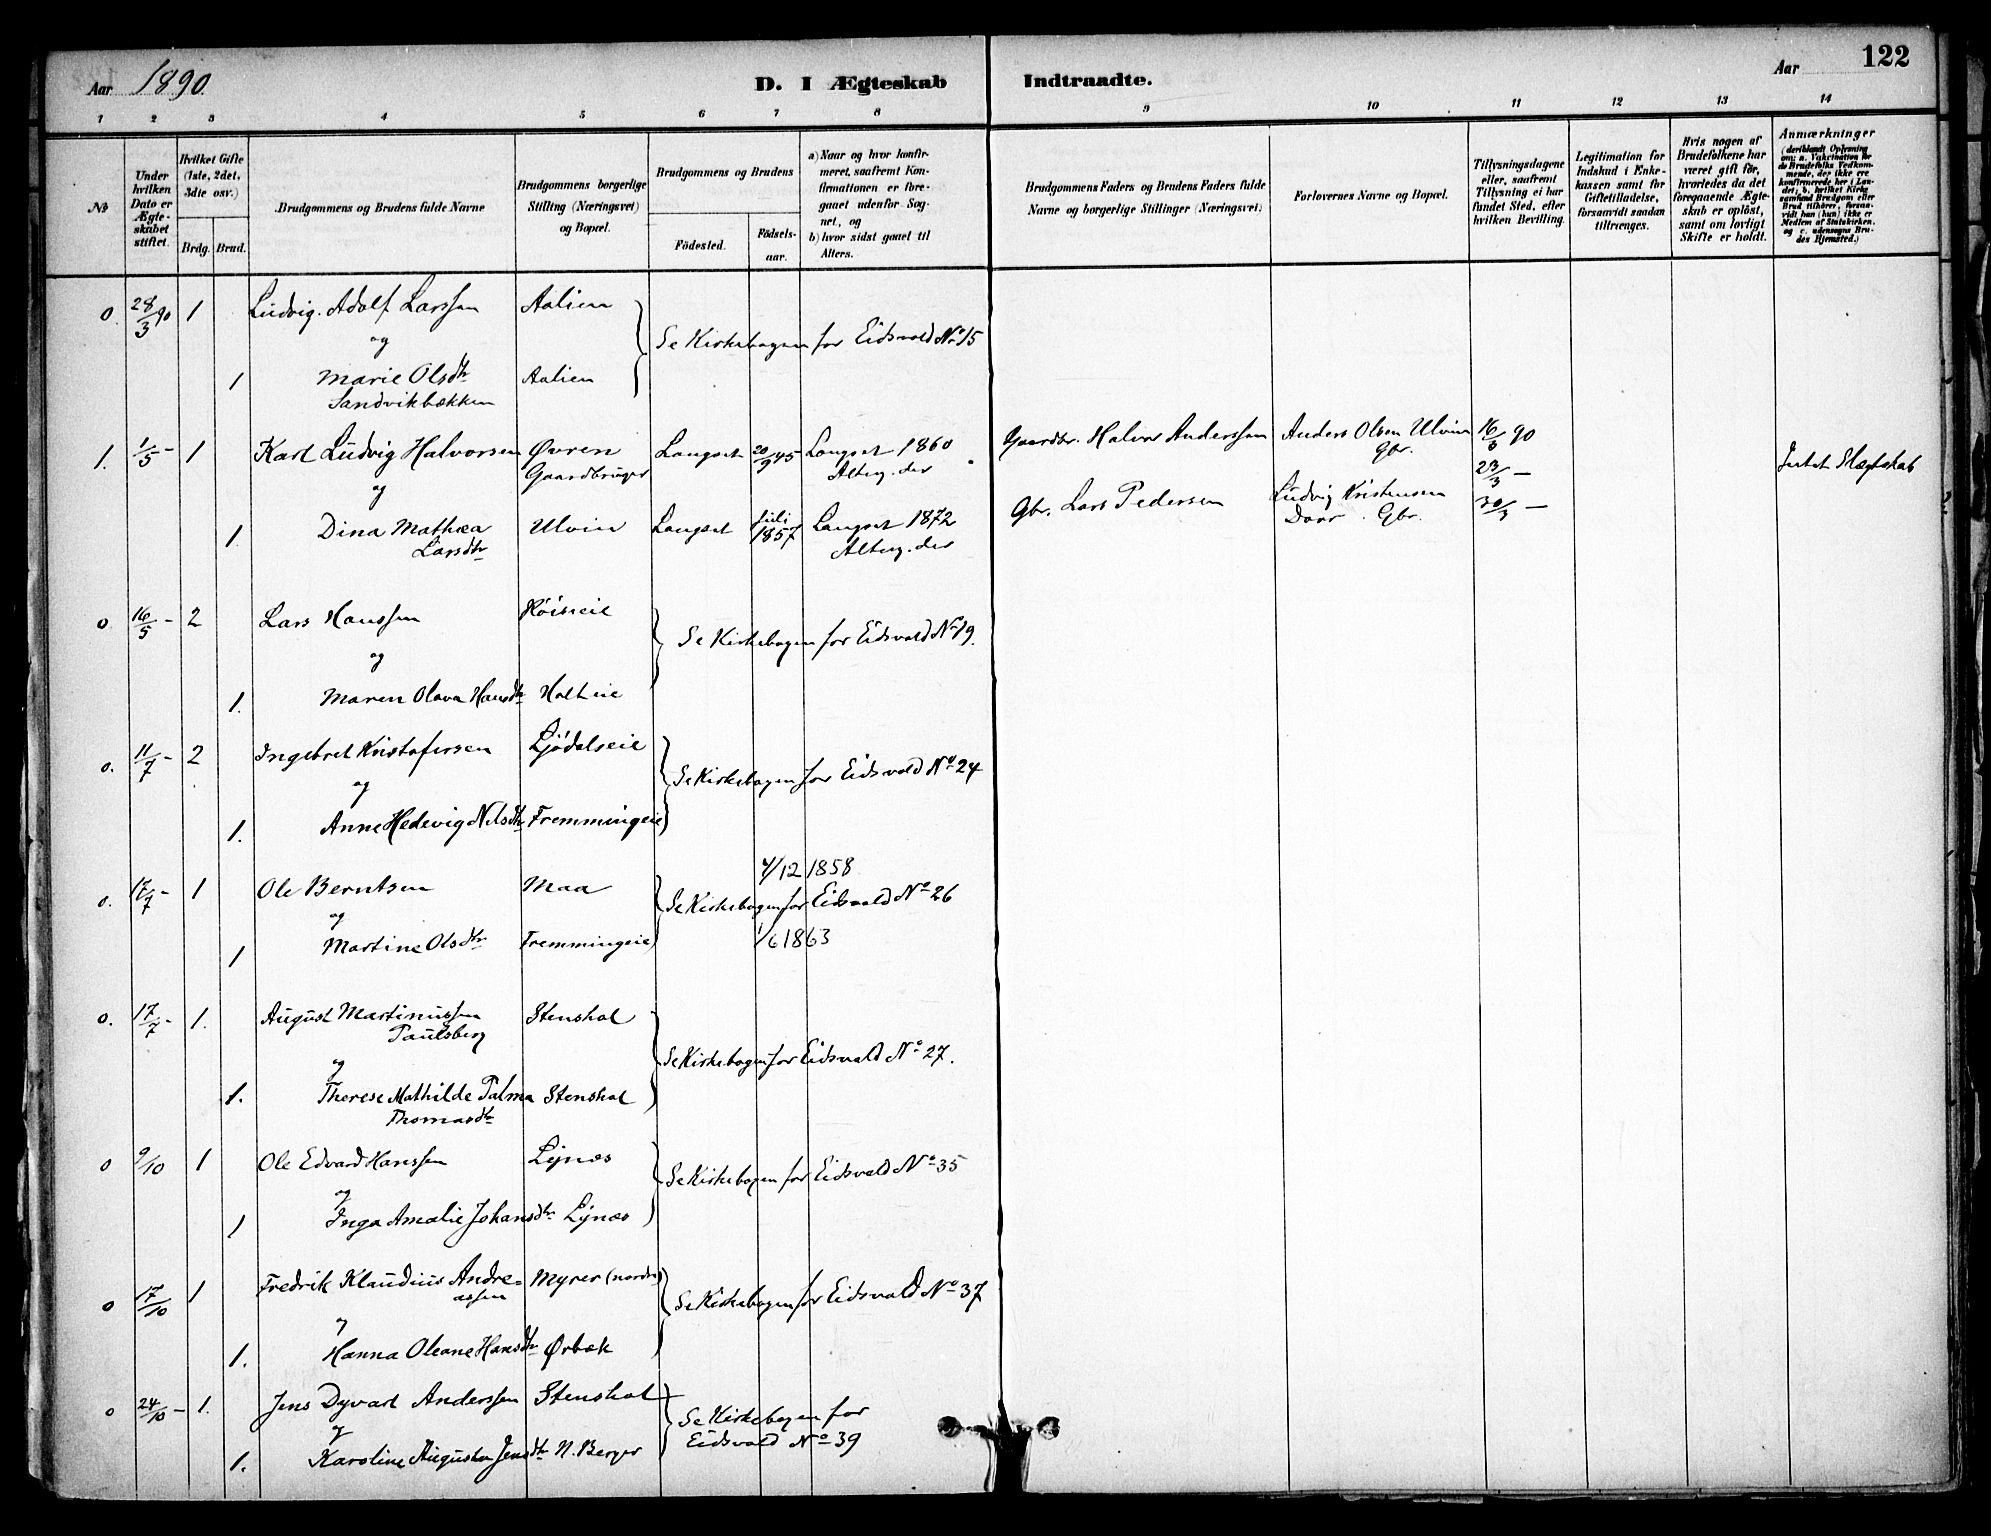 Aar 1890.
D. I Ægteskab Indtraadte.
Aar
122
1 2 3 4 5 6 7 8 9 10 11 12 13 14
No
Under hvilken Dato er Ægteskabet stiftet.
Hvilket Gifte (1ste, 2det, 3die osv.)
Brdg. Brud.
Brudgommens og Brudens fulde Navne
Brudgommens borgerlige Stilling (Næringsvei) og Bopæl.
Brudgommens og Brudens
Födested.
Födsels-aar.
a) Naar og hvor konfirmeret, saafremt Konfirmationen er foregaaet udenfor Sognet, og
b) hvor sidst gaaet til Alters.
Brudgommens Faders og Brudens Faders fulde Navne og borgerlige Stillinger (Næringsvei)
Forlovernes Navne og Bopæl.
Tillysningsdagene eller, saafremt Tillysning ei har fundet Sted, efter hvilken Bevilling.
Legitimation for Indskud i Enkekassen samt for Giftetilladelse, forsaavidt saadan tiltrænges.
Hvis nogen af Brudefolkene har været gift för, hvorledes da det foregaaende Ægteskab er oplöst, samt om lovligt Skifte er holdt.
Anmærkninger
(deriblandt Oplysning om: a. Vakcination for de Brudefolks Vedkommende, der ikke ere konfirmerede her i Landet; b. hvilket Kirkesamfund Brudgom eller Brud tilhörer, forsaavidt han (hun) ikke er Medlem af Statskirken, og c. udensogns Brudes Hjemsted.)
0. 28/3 90 1 Ludvig Adolf Larssen Aalien
og
Se Kirkebogen for Eidsvold No 15
1 Marie Olsdtr Aalien
Sandvikbækken
1. 1/5 - 1 Karl Ludvig Halvorsen Øvren Langset 20/9 45 Langset 1860 Gaardbr. Halvor Anderssen Anders Olsen Ulvin 16/3 90
Gaardbruger Alterg. der Gbr. 23/3 - Intet Slægtskab
og
1. Dina Mathea Ulvin Langset Juli 1857 Langset 1872 Gbr. Lars Pedersen Ludvig Kristensen 30/3 -
Larsdtr Alterg. der Gbr.
0 16/5 - 2 Lars Hanssen Höiseie
og
Se Kirkebogen for Eidsvold No 19.
1. Maren Olava Hansdtr Holteie
0. 11/7 - 2 Ingebret Kristofersen Ljödalseie
og
Se Kirkebogen for Eidsvold No 24
1. Anne Hedevig Nilsdtr Fremmingeie
4/12 1858
0. 17/7 - 1 Ole Berntsen Maa
og
Se Kirkebogen for Eidsvold No 26
1 Martine Olsdtr Fremmingeie 1/6 1863
0. 17/7 - 1. August Martinussen Stenshol
Paulsberg
og
Se Kirkebogen for Eidsvold No 27.
1. Therese Mathilde Palma Stenshol
Thomasdtr
0 9/10 1 Ole Edvard Hanssen Lynæs
og
Se Kirkebogen for Eidsvold No 35
1 Inga Amalie Johansdtr Lynæs
0 17/10 1 Fredrik Klaudius Andre= Myrer (nordre)
assen
og
Se Kirkebogen for Eidsvold No 37
1. Hanna Oleane Hansdtr Ørbæk
0 24/10 - 1. Jens Dyvart Anderssen Stenshol
og
Se Kirkebogen for
Eidsvold No 39
1. Karoline Augusta Jensdtr N. Berger